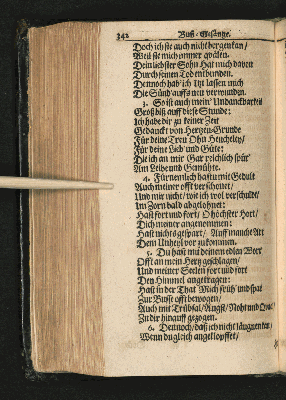 342 Buß-Gesänge.
Doch ich sie auch nicht bergen kan/
Weil sie mich immer quälen.
Dein liebster Sohn hat mich davon
Durch seinen Tod entbunden.
Dennoch hab ich itzt lassen mich
Die Sünd auffs neu verwunden.
3. So ist auch mein Undanckbarkeit
Groß biß auff diese Stunde:
Ich habe dir zu keiner Zeit
Gedanckt von Hertzen-Grunde
Für deine Treu Ohn Heucheley/
Für deine Lieb und Güte:
Die ich an mir Gar reichlich spür
Am Leib und Gemühte.
4. Fürnemlich hastu mit Gedult
Auch meiner offt verschonet/
Und mir nicht/ wie ich wol verschuldt/
Im Zorn bald abgelohnet:
Hast fort und fort/ O höchster Hort/
Dich meiner angenommen:
Hast nicht gespart/ Auff manche Art
Dem Unheyl vor zukommen.
5. Du hast mit deinem edlen Wort
Offt an mein Hertz geschlagen/
Und meiner Seelen fort und fort
Den Himmel angetragen:
Hast in der That Mich früh und spat
Zur Busse offt bewogen/
Auch mit Trübsal/ Angst/ Noht und Qual/
Zu dir hinauff gezogen.
6. Dennoch/ daß ich nicht läugnen kan/
Wenn du gleich angeklopffet/